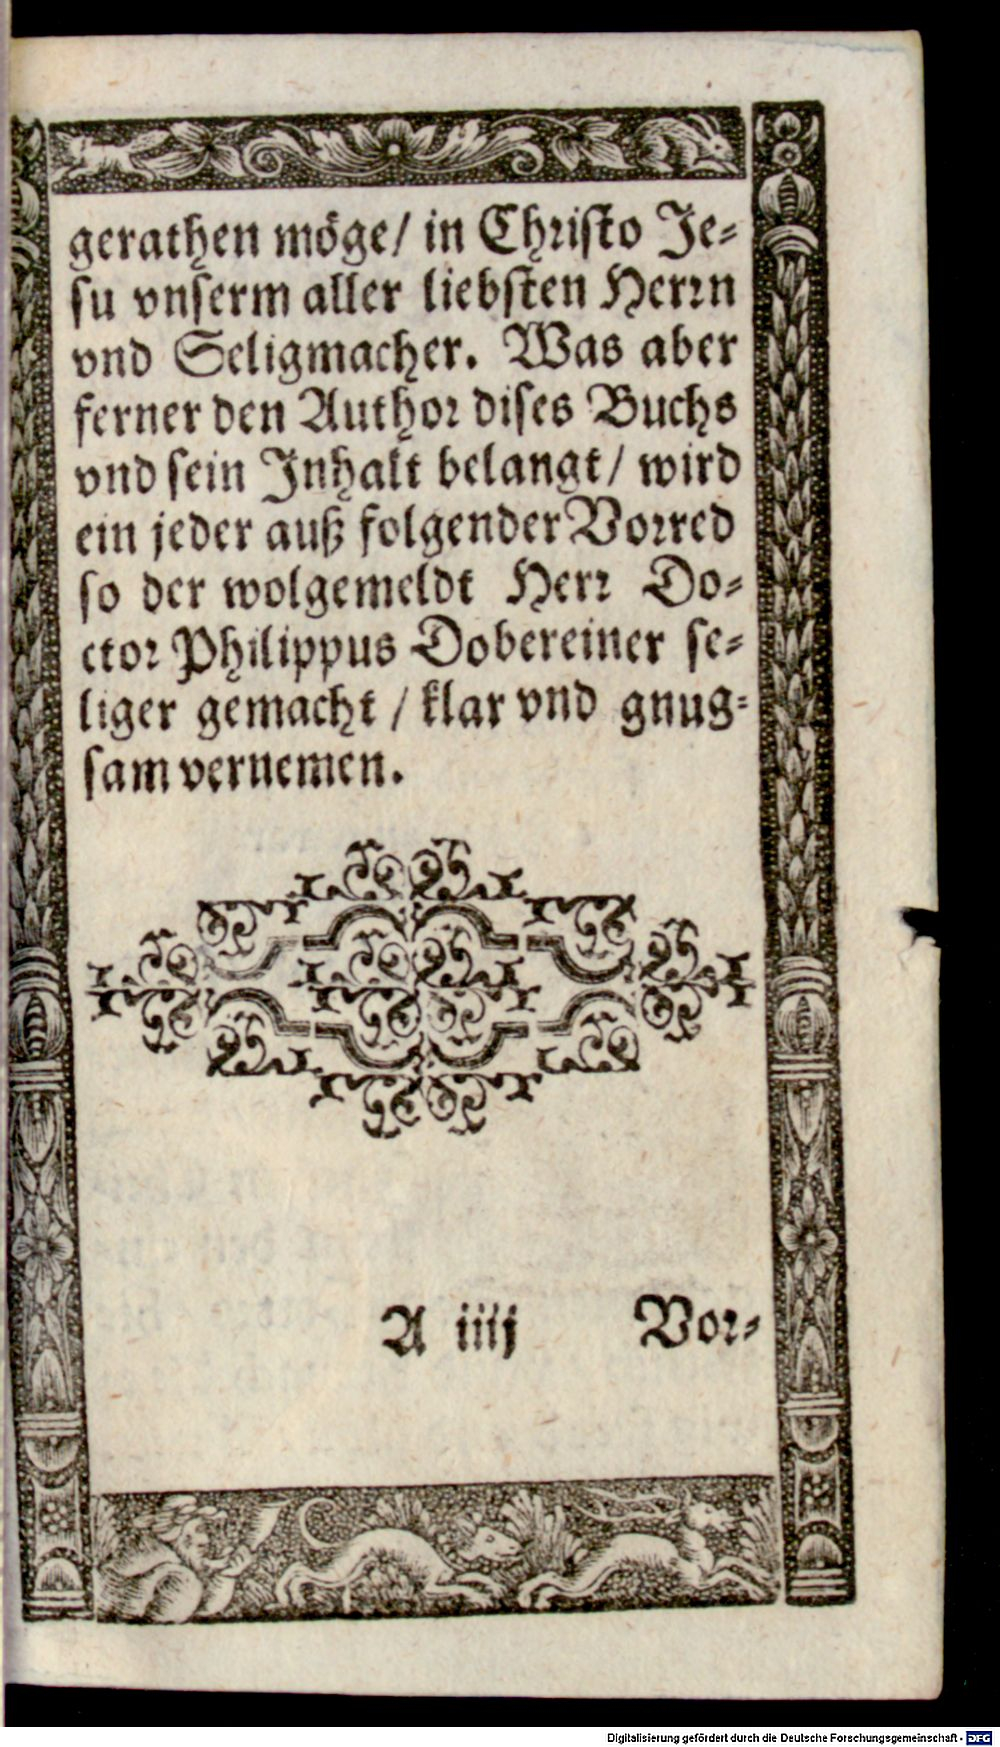 gerathen möge/ in Christo Je-
su vnserm aller liebsten Herrn
vnd Seligmacher. Was aber
ferner den Author dises Buchs
vnd sein Inhalt belangt/ wird
ein jeder auß folgender Vorred
so der wolgemeldt Herr Do-
ctor Philippus Dobereiner se-
liger gemacht / klar vnd gnug-
sam vernemen.
A iiij Vor-
Digitalisierung gefördert durch die Deutsche Forschungsgemeinschaft - DFG